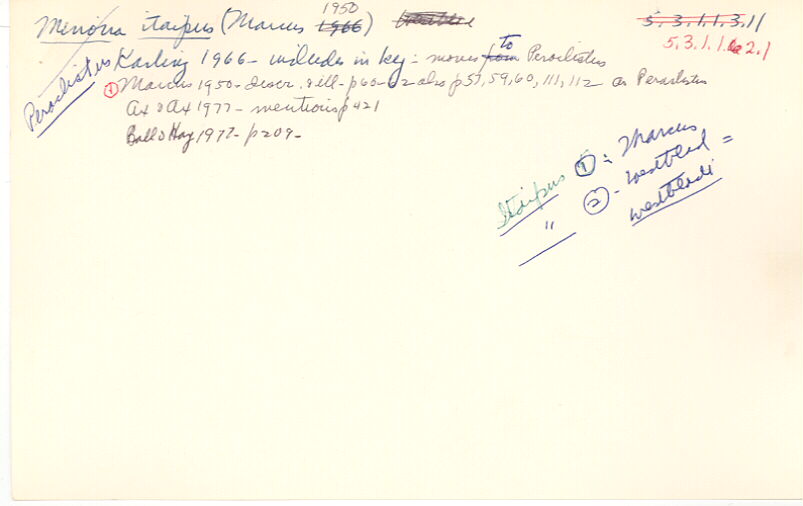 1950
Menona itaipus (Marcus 1966)
5.3.1.1.3.11
5.3.1.1.6 2.1
Peraclistus Karling 1966 - includes in key - moves from to Peraclistus
① Marcus 1950 - descr. & ill - p60-62 also p57, 59, 60, 111, 112 as Peraclistus
Ax & Ax 1977 - mentions p421
Ball & Hay 1977 - p209 -
Itaipus ① = Marcus
" ② - Westblad =
westbladi